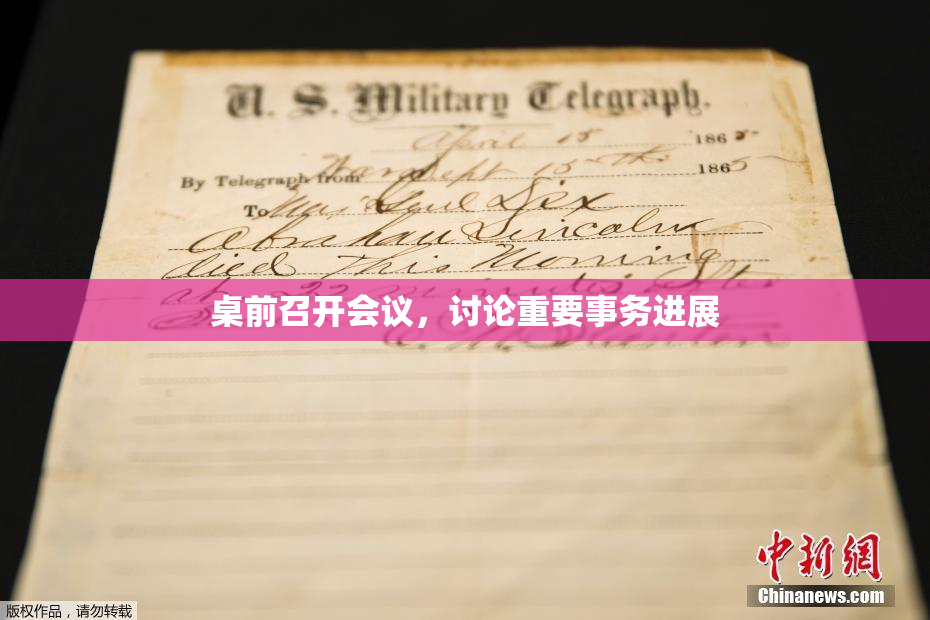 U. S. Military Telegraph.
April 15 1865
By Telegraph from War Dept 15th 1865
To Maj Genl Dix
Abraham Lincoln
died This Morning
at 22 minutes after
桌前召开会议，讨论重要事务进展
E. M. Stanton
中新網
Chinanews.com
版权作品，请勿转载